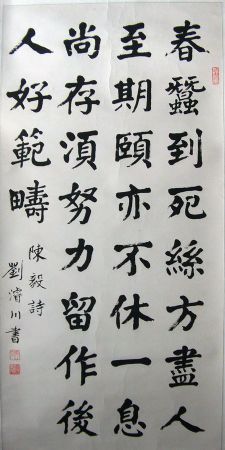 春蠶到死絲方盡人
至期頤亦不休一息
尚存湏努力留作後
人好範疇
陳毅詩
劉濬川書